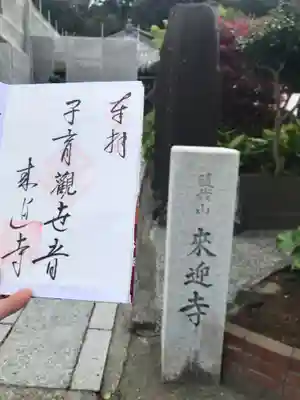 奉拝
子育觀世音
来迎寺
隨我山
來迎寺